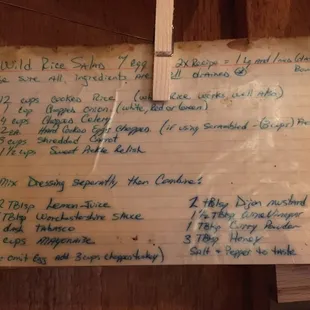 Wild Rice Salad / egg 2x Recipe = 1 Lg and 1
Be Sure All Ingredients Are Well drained
12 cups Cooked Rice Rice works well
1 cup Chopped Onion (white, Red or Green)
4 cups Chopped Celery
12 ea. Hard Cooked Eggs Chopped (if using Scrambled
3 cups Shredded Carrot
1 1/2 cups Sweet Pickle Relish
Mix Dressing seperatly than Combine:
2 TBlsp Lemon Juice
TBlsp Worchestershire Sauce
dash Tabasco
cups Mayonnaise
omit Egg add 3 cups chopped turkey)
2 TBlsp Dijon mustard
1 1/2 TBlsp Wine Vinegar
1 TBlsp Curry Powder
3 TBlsp Honey
Salt & Pepper to taste